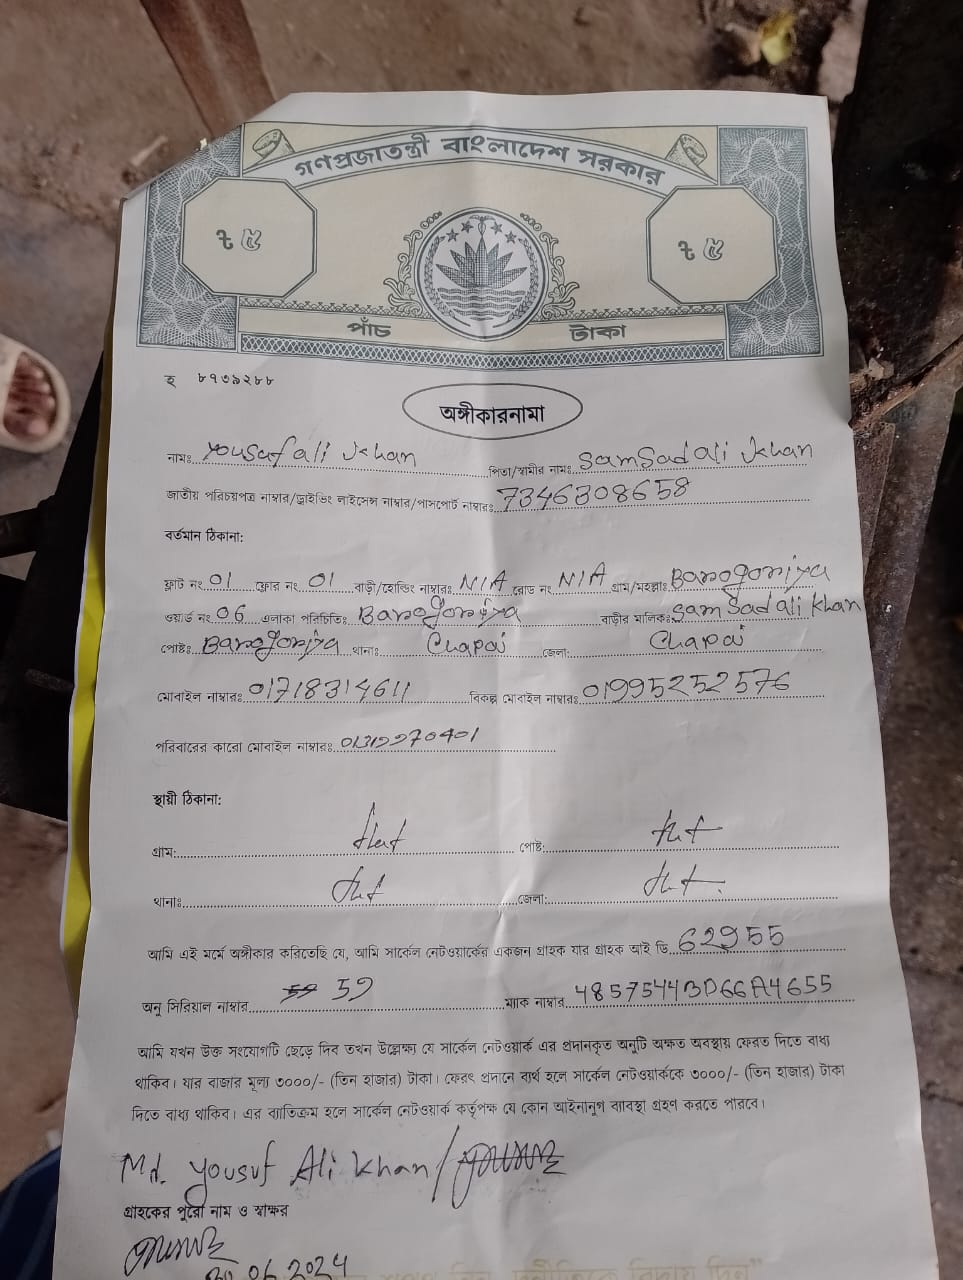 গণপ্রজাতন্ত্রী বাংলাদেশ সরকার
৳ ৫ ৳ ৫
পাঁচ টাকা
হ ৮৭৩৯২৮৮
অঙ্গীকারনামা
নামঃ Yousaf ali Khan পিতা/স্বামীর নামঃ Samsad ali Khan
জাতীয় পরিচয়পত্র নাম্বার/ড্রাইভিং লাইসেন্স নাম্বার/পাসপোর্ট নাম্বারঃ 7346308658
বর্তমান ঠিকানা:
ফ্লাট নং 01 ফ্লোর নং 01 বাড়ী/হোল্ডিং নাম্বারঃ N/A রোড নং N/A গ্রাম/মহল্লাঃ Barogoriya
ওয়ার্ড নং 06 এলাকা পরিচিতিঃ Barogoriya বাড়ীর মালিকঃ Sam Sad ali khan
পোষ্টঃ Barogoriya থানাঃ Chapai জেলা: Chapai
মোবাইল নাম্বারঃ 01718314611 বিকল্প মোবাইল নাম্বারঃ 01995252576
পরিবারের কারো মোবাইল নাম্বারঃ 01319970401
স্থায়ী ঠিকানা:
গ্রাম: পোষ্ট:
থানাঃ জেলা:
আমি এই মর্মে অঙ্গীকার করিতেছি যে, আমি সার্কেল নেটওয়ার্কের একজন গ্রাহক যার গ্রাহক আই ডি 62955
অনু সিরিয়াল নাম্বার 59 ম্যাক নাম্বার 48575443D66A4655
আমি যখন উক্ত সংযোগটি ছেড়ে দিব তখন উল্লেক্ষ্য যে সার্কেল নেটওয়ার্ক এর প্রদানকৃত অনুটি অক্ষত অবস্থায় ফেরত দিতে বাধ্য
থাকিব। যার বাজার মূল্য ৩০০০/- (তিন হাজার) টাকা। ফেরৎ প্রদানে ব্যর্থ হলে সার্কেল নেটওয়ার্ককে ৩০০০/- (তিন হাজার) টাকা
দিতে বাধ্য থাকিব। এর ব্যতিক্রম হলে সার্কেল নেটওয়ার্ক কর্তৃপক্ষ যে কোন আইনানুগ ব্যাবস্থা গ্রহণ করতে পারবে।
Md. Yousuf Ali Khan/
গ্রাহকের পুরো নাম ও স্বাক্ষর
06.2024